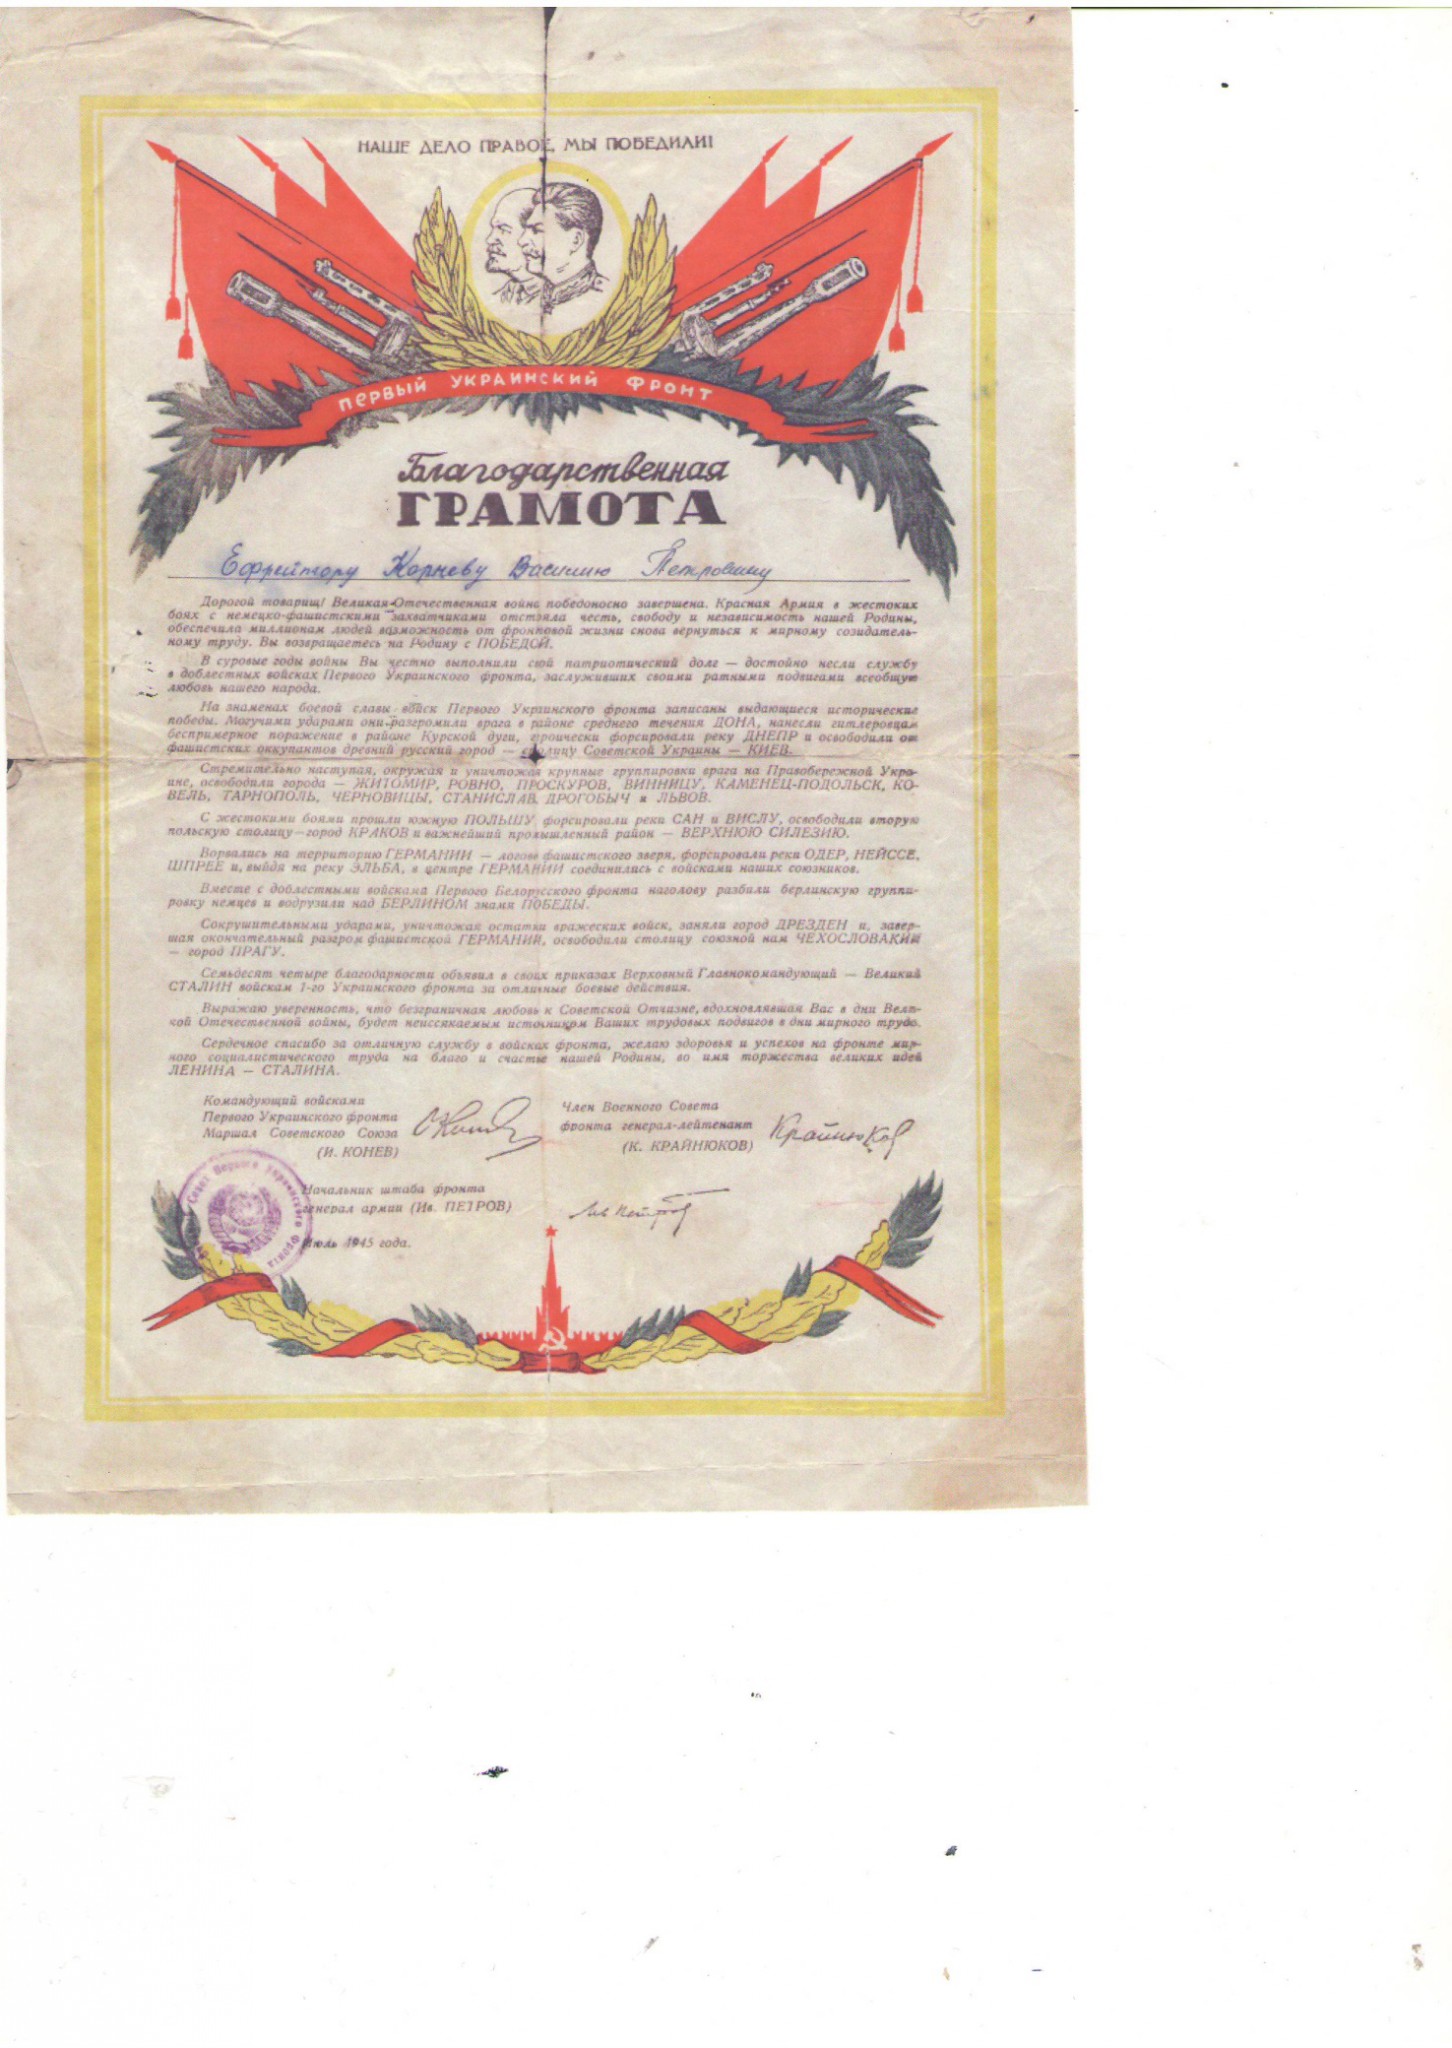 НАШЕ ДЕЛО ПРАВОЕ, МЫ ПОБЕДИЛИ!
ПЕРВЫЙ УКРАИНСКИЙ ФРОНТ
Благодарственная
ГРАМОТА
Ефрейтору Корневу Василию Петровичу
Дорогой товарищ! Великая Отечественная война победоносно завершена. Красная Армия в жестоких
боях с немецко-фашистскими захватчиками отстояла честь, свободу и независимость нашей Родины,
обеспечила миллионам людей возможность от фронтовой жизни снова вернуться к мирному созидатель-
ному труду. Вы возвращаетесь на Родину с ПОБЕДОЙ.
В суровые годы войны Вы честно выполнили свой патриотический долг — достойно несли службу
в доблестных войсках Первого Украинского фронта, заслуживших своими ратными подвигами всеобщую
любовь нашего народа.
На знаменах боевой славы войск Первого Украинского фронта записаны выдающиеся исторические
победы. Могучими ударами они разгромили врага в районе среднего течения ДОНА, нанесли гитлеровцам
беспримерное поражение в районе Курской дуги, героически форсировали реку ДНЕПР и освободили от
фашистских оккупантов древний русский город — столицу Советской Украины — КИЕВ.
Стремительно наступая, окружая и уничтожая крупные группировки врага на Правобережной Укра-
ине, освободили города — ЖИТОМИР, РОВНО, ПРОСКУРОВ, ВИННИЦУ, КАМЕНЕЦ-ПОДОЛЬСК, КО-
ВЕЛЬ, ТАРНОПОЛЬ, ЧЕРНОВИЦЫ, СТАНИСЛАВ, ДРОГОБЫЧ и ЛЬВОВ.
С жестокими боями прошли южную ПОЛЬШУ, форсировали реки САН и ВИСЛУ, освободили вторую
польскую столицу—город КРАКОВ и важнейший промышленный район — ВЕРХНЮЮ СИЛЕЗИЮ.
Ворвались на территорию ГЕРМАНИИ — логово фашистского зверя, форсировали реки ОДЕР, НЕЙССЕ,
ШПРЕЕ и, выйдя на реку ЭЛЬБА, в центре ГЕРМАНИИ соединились с войсками наших союзников.
Вместе с доблестными войсками Первого Белорусского фронта наголову разбили берлинскую группи-
ровку немцев и водрузили над БЕРЛИНОМ знамя ПОБЕДЫ.
Сокрушительными ударами, уничтожая остатки вражеских войск, заняли город ДРЕЗДЕН и, завер-
шая окончательный разгром фашистской ГЕРМАНИИ, освободили столицу союзной нам ЧЕХОСЛОВАКИИ
— город ПРАГУ.
Семьдесят четыре благодарности объявил в своих приказах Верховный Главнокомандующий — Великий
СТАЛИН войскам 1-го Украинского фронта за отличные боевые действия.
Выражаю уверенность, что безграничная любовь к Советской Отчизне, вдохновлявшая Вас в дни Вели-
кой Отечественной войны, будет неиссякаемым источником Ваших трудовых подвигов в дни мирного труда.
Сердечное спасибо за отличную службу в войсках фронта, желаю здоровья и успехов на фронте мир-
ного социалистического труда на благо и счастье нашей Родины, во имя торжества великих идей
ЛЕНИНА — СТАЛИНА.
Командующий войсками
Первого Украинского фронта
Маршал Советского Союза
(И. КОНЕВ)
Член Военного Совета
фронта генерал-лейтенант
(К. КРАЙНЮКОВ)
Крайнюков
Начальник штаба фронта
генерал армии (Ив. ПЕТРОВ)
Ив Петров
Июль 1945 года.
Совет Первого Украинского Фронта